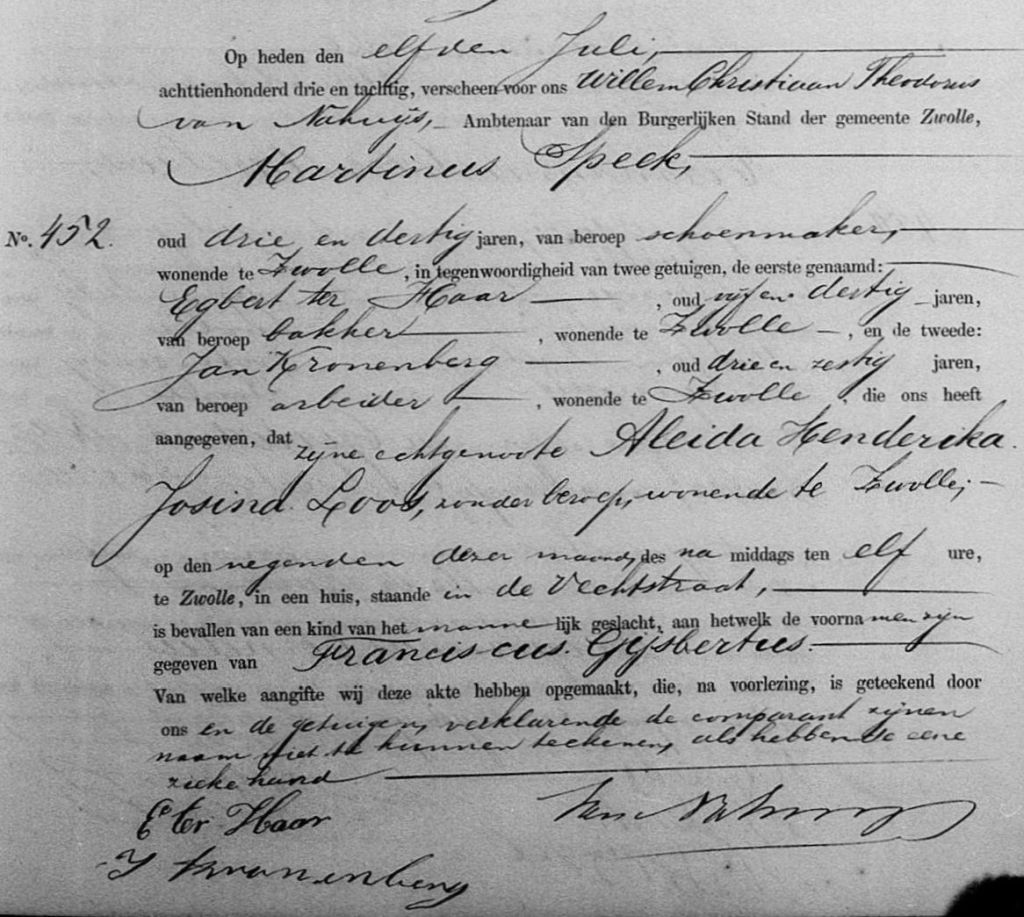 Op heden den elfden Juli,
achttienhonderd drie en tachtig, verscheen voor ons Willem Christiaan Theodorus
van Nahuijs, Ambtenaar van den Burgerlijken Stand der gemeente Zwolle,
Martinus Speck,
No. 452. oud drie en dertig jaren, van beroep schoenmaker,
wonende te Zwolle, in tegenwoordigheid van twee getuigen, de eerste genaamd:
Egbert ter Haar, oud vijf en dertig jaren,
van beroep bakker, wonende te Zwolle, en de tweede:
Jan Kronenberg, oud drie en zestig jaren,
van beroep arbeider, wonende te Zwolle, die ons heeft
aangegeven, dat zijne echtgenoote Aleida Henderika
Josina Loos, zonder beroep, wonende te Zwolle;
op den negenden dezer maand, des na middags ten elf ure,
te Zwolle, in een huis, staande in de Vechtstraat,
is bevallen van een kind van het manne lijk geslacht, aan hetwelk de voorna men zijn
gegeven van Franciscus Gijsbertus.
Van welke aangifte wij deze akte hebben opgemaakt, die, na voorlezing, is geteekend door
ons en de getuigen, verklarende de comparant zijnen
naam niet te kunnen teekenen, als hebbende eene
zieke hand
E ter Haar
Van Nahuys
J Kronenberg